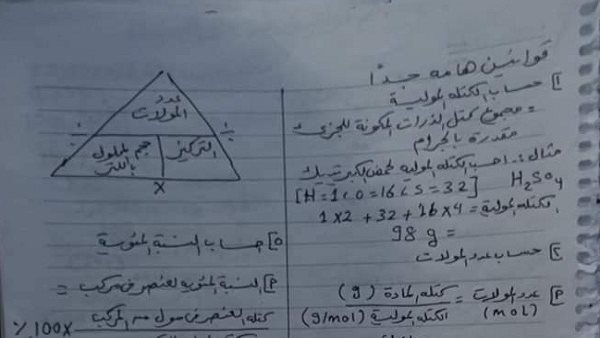 قوانين هامه جدًا
1] حساب الكتله المولية
= مجموع كتل الذرات المكونة للجزئ
مقدرة بالجرام
مثال :- احسب الكتله الموليه لحمض الكبريتيك
H₂SO₄ [H = 1, O = 16, S = 32]
الكتله المولية = 1 x 2 + 32 + 16 x 4
= 98 g
2] حساب عدد المولات
P] عدد المولات (mol) = كتله المادة (g)
الكتله المولية (g/mol)
عدد
المولات
÷ ÷
التركيز حجم المحلول
باللتر
x
5] حساب النسبة المئوية
P] النسبة المئويه لعنصر فى مركب =
كتله العنصر فى مول من المركب x 100 %